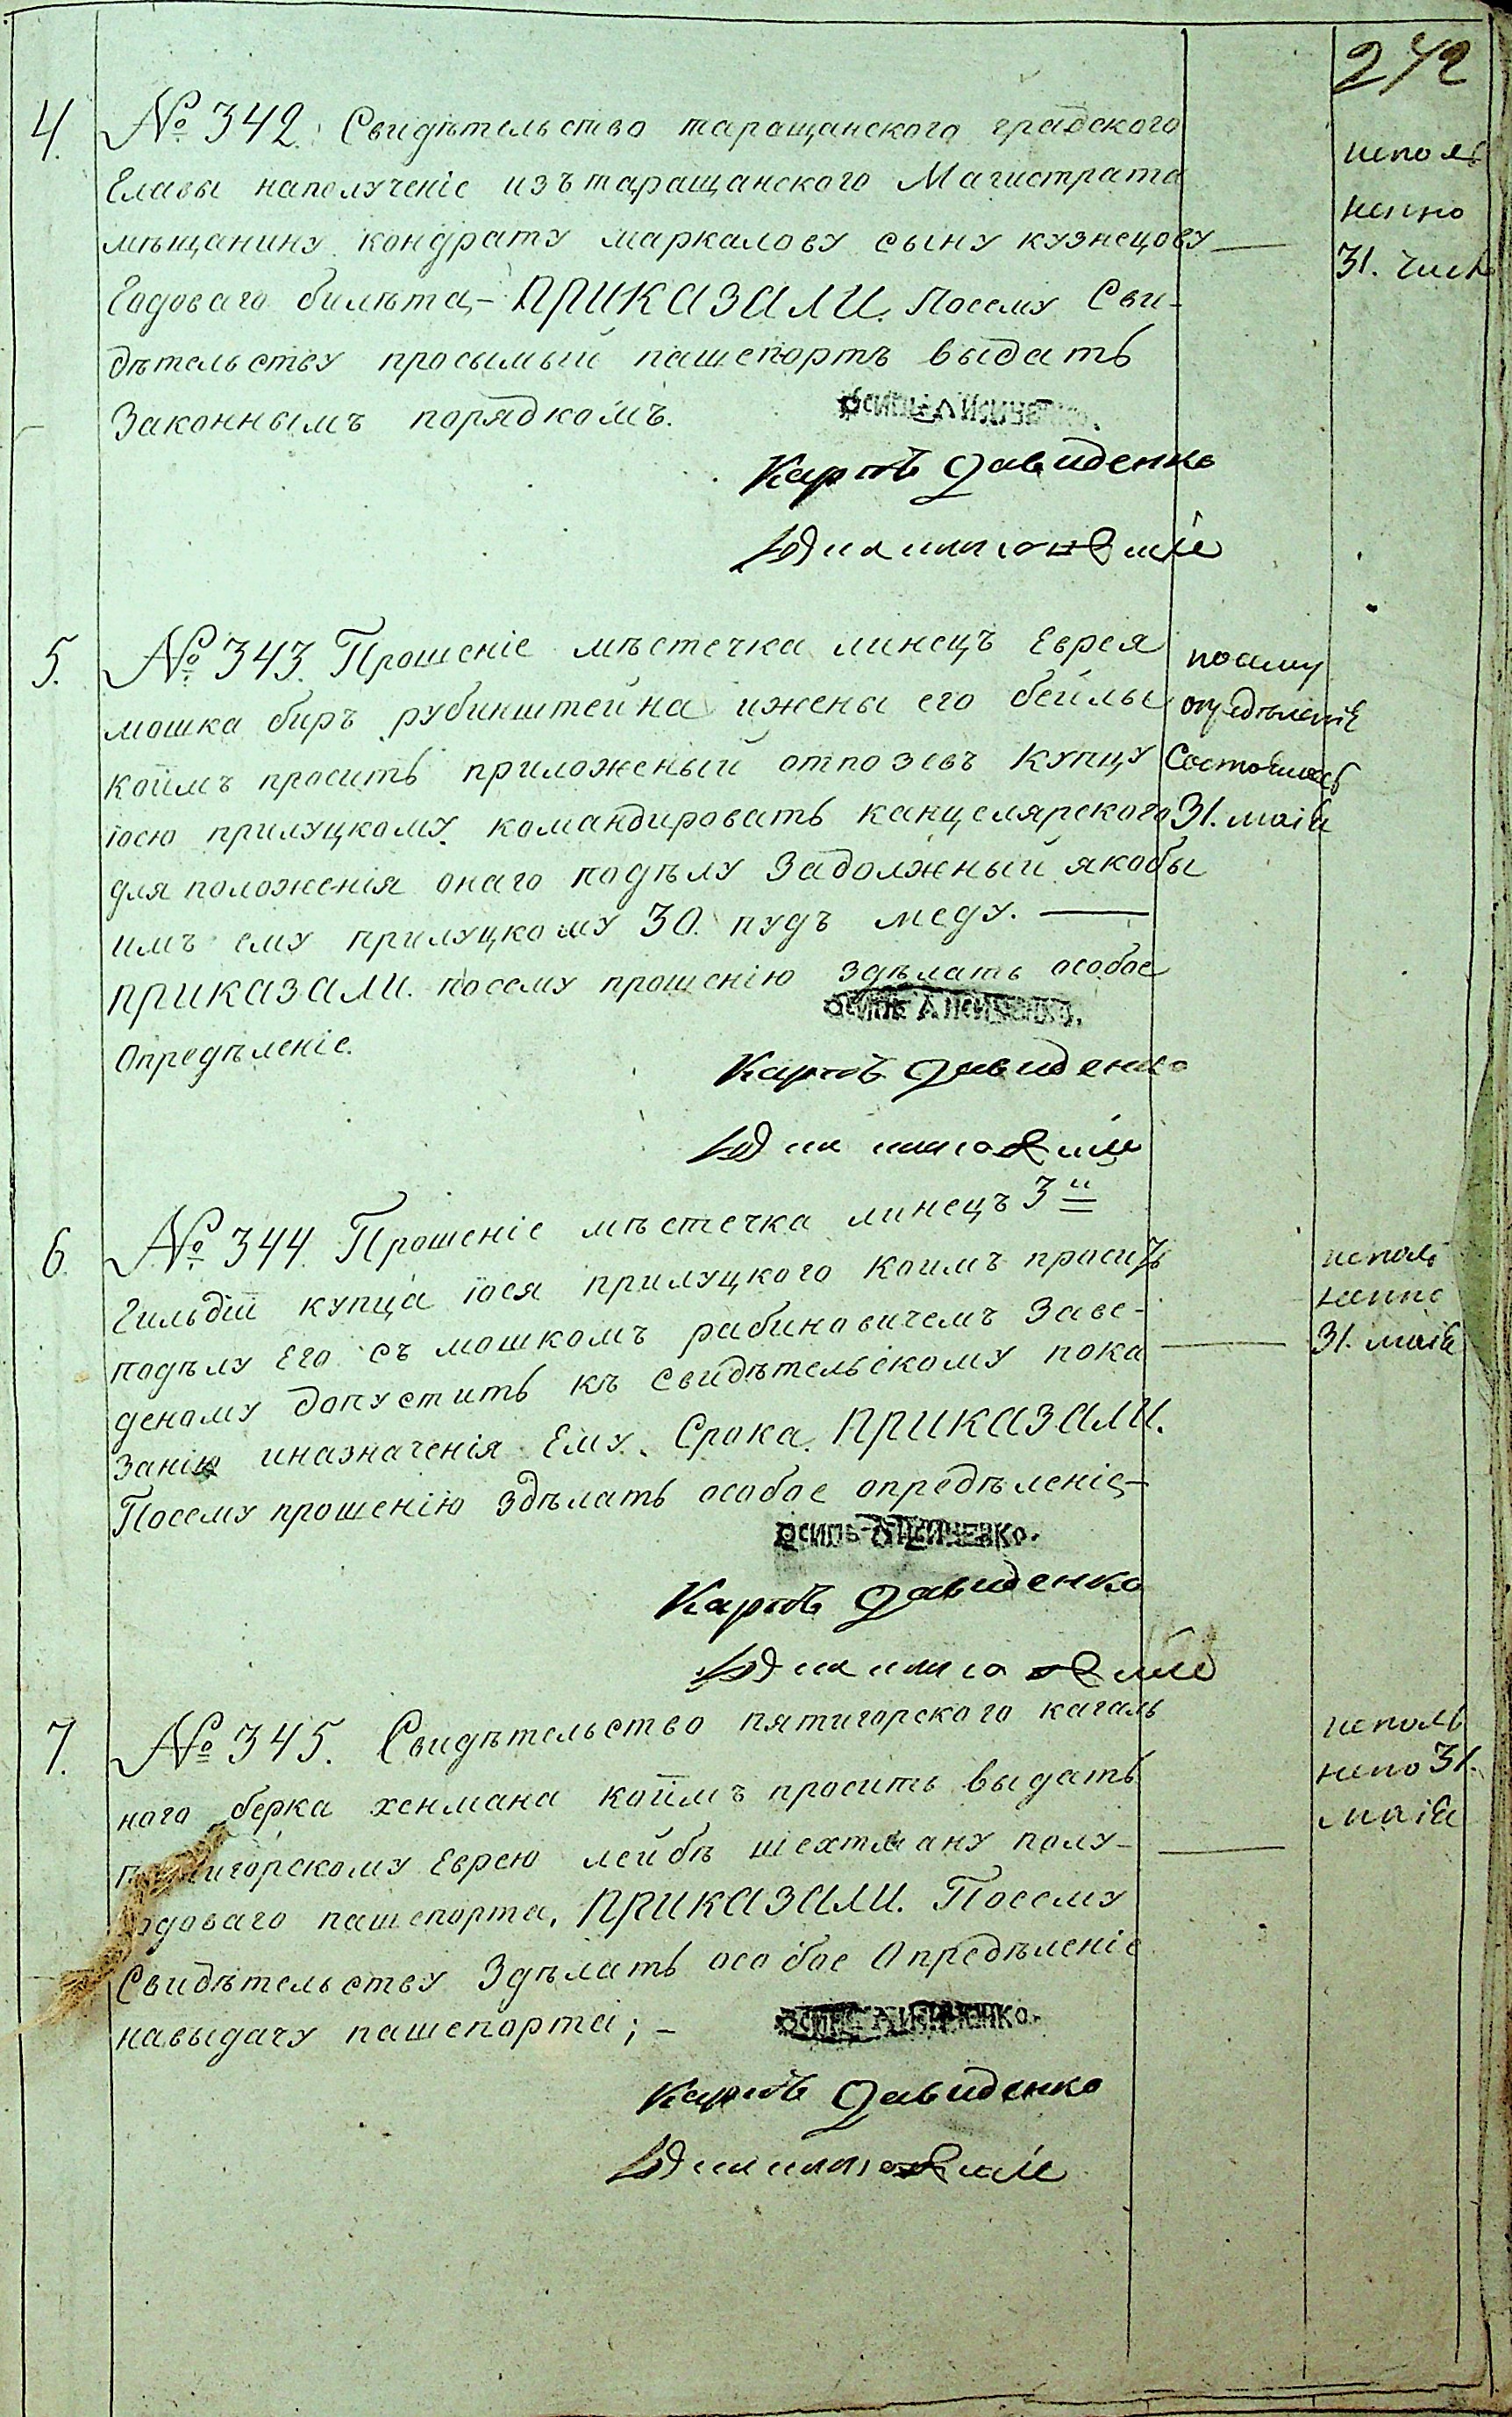 242
4. № 342. Свидѣтельство таращанского градского
Главы наполученіе изъ таращанского Магистрата
мѣщанину кондрату маркалову сыну кузнецову —
Годоваго билѣта, – ПРИКАЗАЛИ. Посему Сви-
дѣтельству просымый пашепортъ выдать
Законнымъ порядкомъ.
исполь
ненно
31. числ
Осипъ Лисиченко.
Карпъ Давиденко
5. № 343. Прошеніе мѣстечка линецъ Еврея
мошка биръ рубинштейна ижены его бейлы
коимъ просить приложеный отпозевъ купцу
іосю прилуцкому командировать канцелярского
для положенія онаго подѣлу Задолжный якобы
имъ ему прилуцкому 30. пудъ меду. —
ПРИКАЗАЛИ. посему прошенію здѣлать особое
Опредѣленіе.
посему
опредѣленіе
Состоялось
31. маія
Осипъ Лисиченко.
Карпъ Давиденко
6. № 344. Прошеніе мѣстечка линецъ 3й
Гильдіи купца іося прилуцкого коимъ просить
подѣлу Его съ мошкомъ рабиновичемъ Заве-
деному допустить къ свидѣтельскому пока
занію иназначенія Ему Срока. ПРИКАЗАЛИ.
Посему прошенію здѣлать особое опредѣленіе –
исполь
ненно
31. маія
Осипъ Лисиченко.
Карпъ Давиденко
7. № 345. Свидѣтельство пятигорского кагаль
ного берка хенмана коимъ просить выдать
пятигорскому Еврею лейбѣ шехтману полу-
годоваго пашепорта, ПРИКАЗАЛИ. Посему
Свидѣтельству Здѣлать особое Опредѣленіе
навыдачу пашепорта; –
исполь
нено 31.
маія
Осипъ Лисиченко.
Карпъ Давиденко